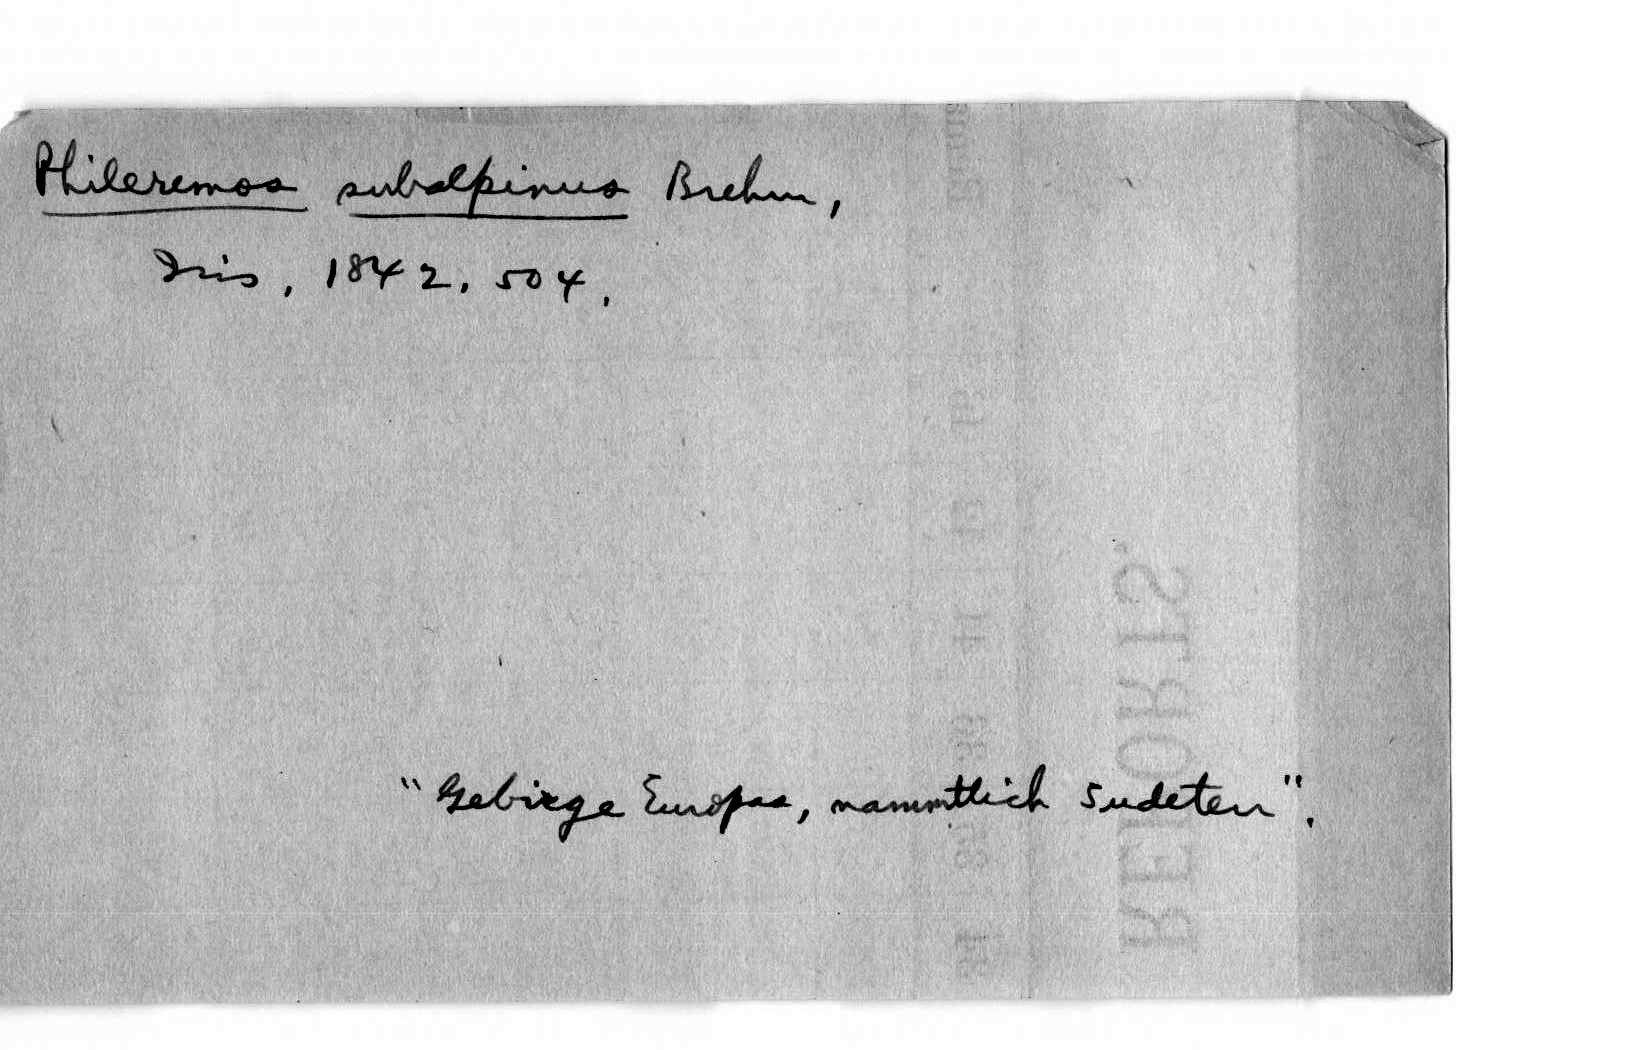 Phileremos subalpinus Brehm,
Isis, 1842, 504.
"Gebirge Europas, nammtlich Sudeten".
REPORTS.